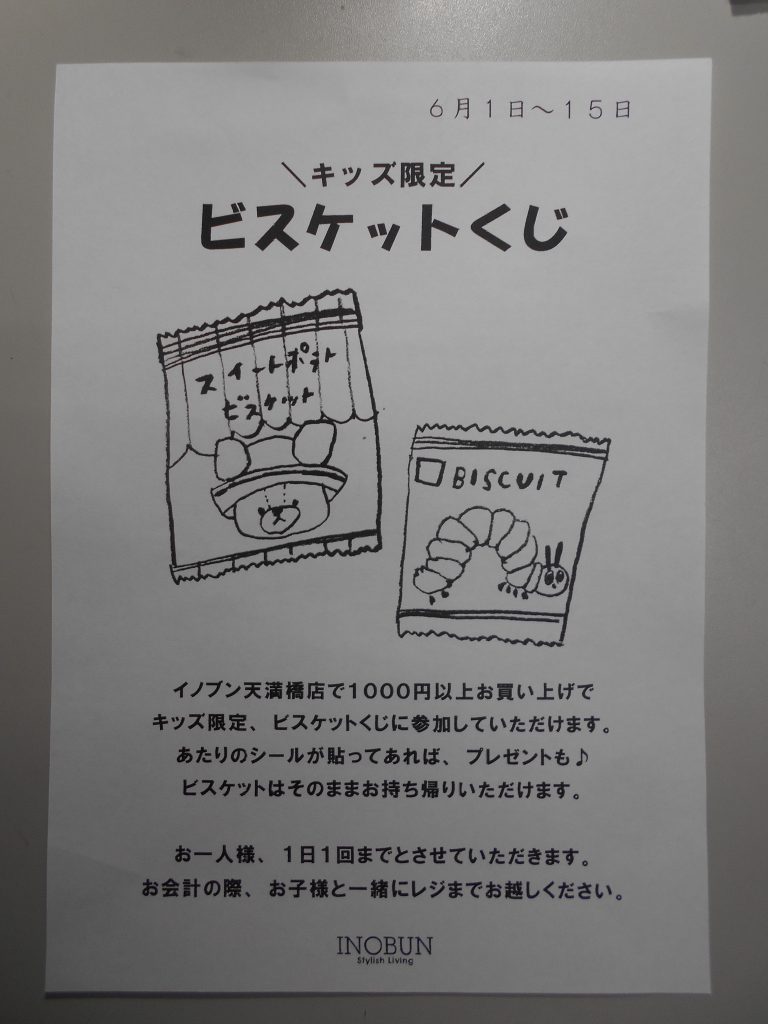 6月1日～15日
＼キッズ限定／
ビスケットくじ
スイートポテト
ビスケット
BISCUIT
イノブン天満橋店で1000円以上お買い上げで
キッズ限定、ビスケットくじに参加していただけます。
あたりのシールが貼ってあれば、プレゼントも♪
ビスケットはそのままお持ち帰りいただけます。
お一人様、1日1回までとさせていただきます。
お会計の際、お子様と一緒にレジまでお越しください。
INOBUN
Stylish Living